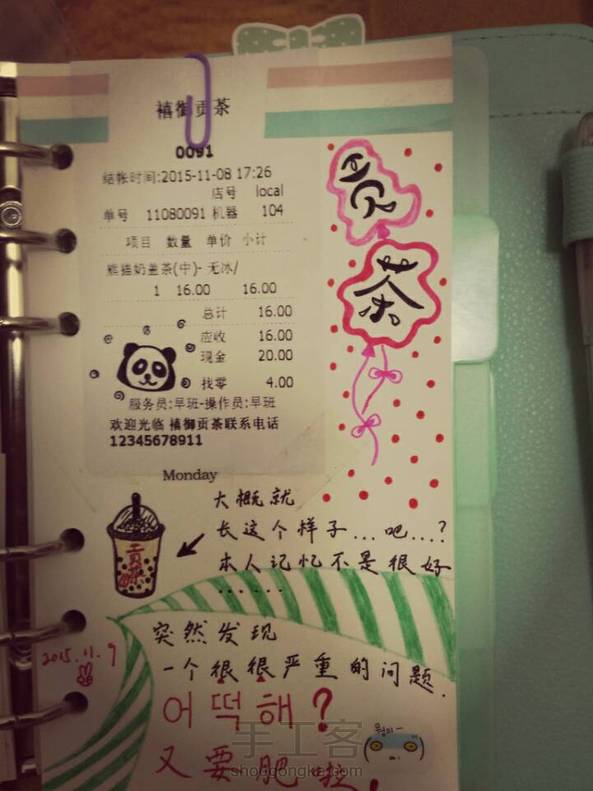 禧御贡茶
0091
结帐时间:2015-11-08 17:26
店号 local
单号 11080091 机器 104
项目 数量 单价 小计
熊猫奶盖茶(中)- 无冰/
1 16.00 16.00
总计 16.00
应收 16.00
现金 20.00
找零 4.00
服务员:早班-操作员:早班
欢迎光临 禧御贡茶联系电话
12345678911
贡
茶
Monday
大概就
长这个样子...吧...?
本人记忆不是很好
......
贡
茶
2015.11.9
突然发现
一个很很严重的问题.
어떡해?
又要肥啦.
뭥미~
手工客
shougongke.com